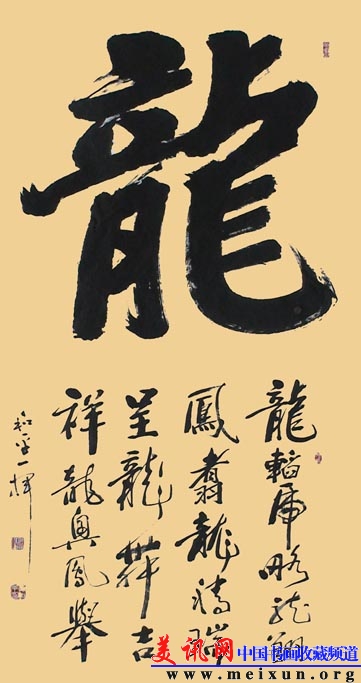 龍
龍韜虎略龍翔
鳳翥龍騰瑞
呈龍舞吉
祥龍興鳳舉
平一揮
美讯网 中国书画收藏频道
www.meixun.org